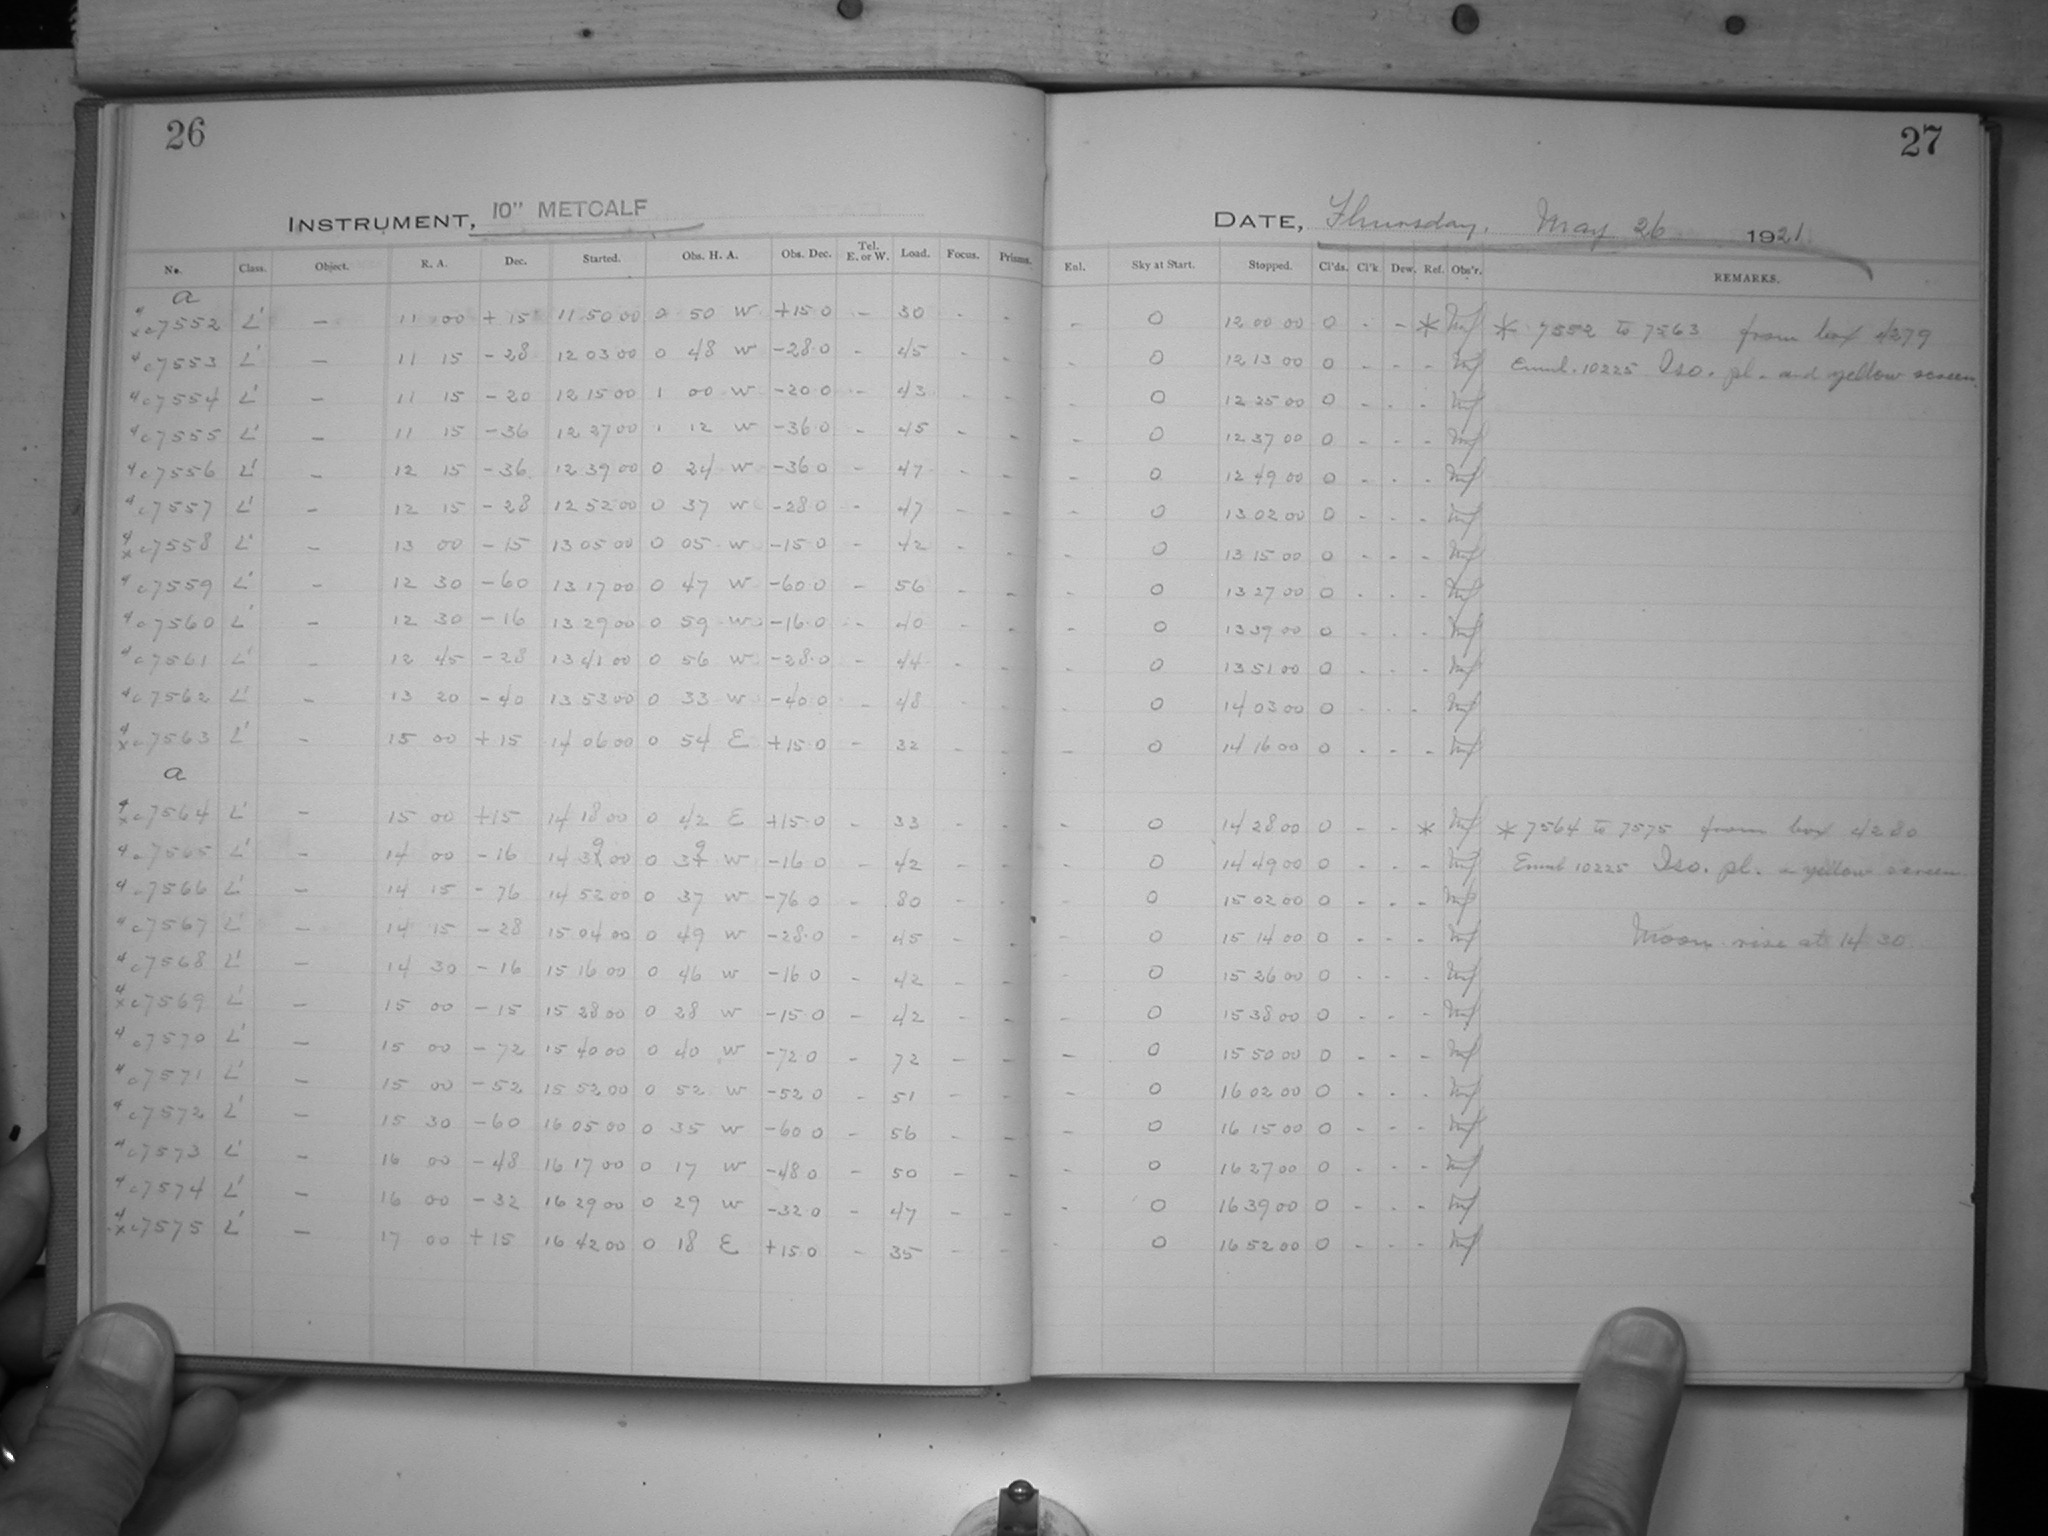 26
INSTRUMENT, 10" METCALF
No. Class. Object. R. A. Dec. Started. Obs. H. A. Obs. Dec. Tel. E. or W. Load. Focus. Prisms.
a
c7552 L' - 11 00 + 15 11 50 00 0 50 W +15 0 - 30 - -
c7553 L' - 11 15 - 28 12 03 00 0 48 W -28 0 - 45 - -
c7554 L' - 11 15 - 20 12 15 00 1 00 W -20 0 - 43 - -
c7555 L' - 11 15 - 36 12 27 00 1 12 W -36 0 - 45 - -
c7556 L' - 12 15 - 36 12 39 00 0 24 W -36 0 - 47 - -
c7557 L' - 12 15 - 28 12 52 00 0 37 W -28 0 - 47 - -
c7558 L' - 13 00 - 15 13 05 00 0 05 W -15 0 - 42 - -
c7559 L' - 12 30 - 60 13 17 00 0 47 W -60 0 - 56 - -
c7560 L' - 12 30 - 16 13 29 00 0 59 W -16 0 - 40 - -
c7561 L' - 12 45 - 28 13 41 00 0 56 W -28 0 - 44 - -
c7562 L' - 13 20 - 40 13 53 00 0 33 W -40 0 - 48 - -
c7563 L' - 15 00 + 15 14 06 00 0 54 E +15 0 - 32 - -
a
c7564 L' - 15 00 +15 14 18 00 0 42 E +15 0 - 33 - -
c7565 L' - 14 00 - 16 14 39 00 0 39 W -16 0 - 42 - -
c7566 L' - 14 15 - 76 14 52 00 0 37 W -76 0 - 80 - -
c7567 L' - 14 15 - 28 15 04 00 0 49 W -28 0 - 45 - -
c7568 L' - 14 30 - 16 15 16 00 0 46 W -16 0 - 42 - -
c7569 L' - 15 00 - 15 15 28 00 0 28 W -15 0 - 42 - -
c7570 L' - 15 00 - 72 15 40 00 0 40 W -72 0 - 72 - -
c7571 L' - 15 00 - 52 15 52 00 0 52 W -52 0 - 51 - -
c7572 L' - 15 30 - 60 16 05 00 0 35 W -60 0 - 56 - -
c7573 L' - 16 00 - 48 16 17 00 0 17 W -48 0 - 50 - -
c7574 L' - 16 00 - 32 16 29 00 0 29 W -32 0 - 47 - -
c7575 L' - 17 00 + 15 16 42 00 0 18 E +15 0 - 35 - -
27
DATE, Thursday, May 26 1921
Enl. Sky at Start. Stopped. Cl'ds. Cl'k Dew. Ref. Obs'r. REMARKS.
- 0 12 00 00 0 - - * * 7552 to 7563 from box 4279
- 0 12 13 00 0 - - - Emul. 10225 Iso. pl. and yellow screen
- 0 12 25 00 0 - - -
- 0 12 37 00 0 - - -
- 0 12 49 00 0 - - -
- 0 13 02 00 0 - - -
- 0 13 15 00 0 - - -
- 0 13 27 00 0 - - -
- 0 13 39 00 0 - - -
- 0 13 51 00 0 - - -
- 0 14 03 00 0 - - -
- 0 14 16 00 0 - - -
- 0 14 28 00 0 - - * * 7564 to 7575 from box 4280
- 0 14 49 00 0 - - - Emul 10225 Iso. pl. yellow screen
- 0 15 02 00 0 - - -
- 0 15 14 00 0 - - - Moon rise at 14 30
- 0 15 26 00 0 - - -
- 0 15 38 00 0 - - -
- 0 15 50 00 0 - - -
- 0 16 02 00 0 - - -
- 0 16 15 00 0 - - -
- 0 16 27 00 0 - - -
- 0 16 39 00 0 - - -
- 0 16 52 00 0 - - -